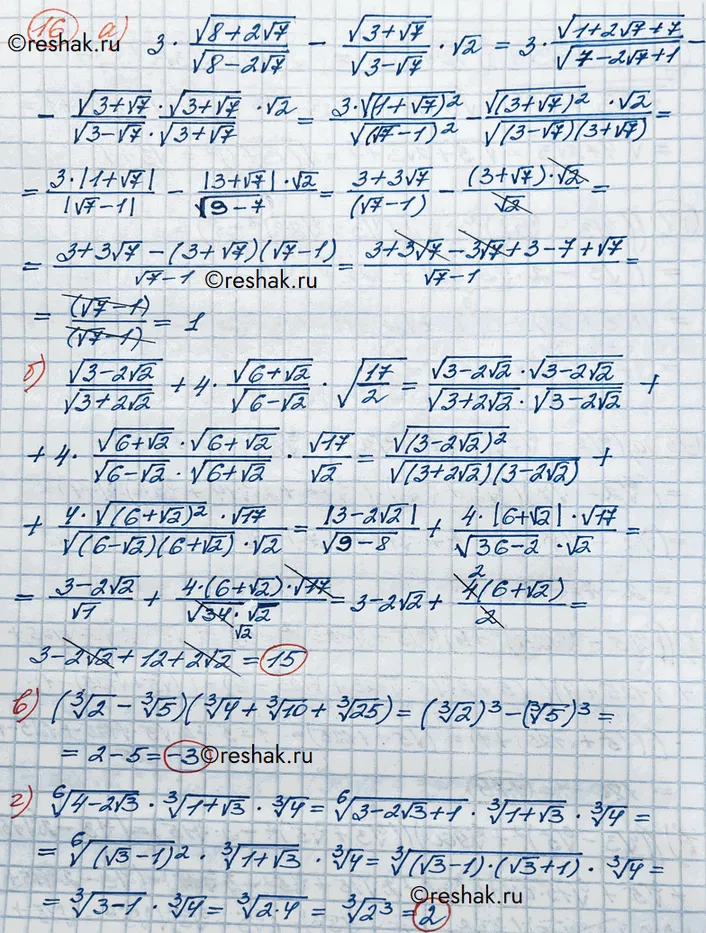 16 а) 3·√(8+2√7)/√(8−2√7) − √(3+√7)/√(3−√7)·√2 = 3·√(1+2√7+7)/√(7−2√7+1) −
©reshak.ru
− √(3+√7)·√(3+√7)/(√(3−√7)·√(3+√7))·√2 = 3·√((1+√7)²)/√((√7−1)²) − √((3+√7)²)·√2/√((3−√7)(3+√7)) =
= 3·|1+√7|/|√7−1| − |3+√7|·√2/√(9−7) = (3+3√7)/(√7−1) − (3+√7)·√2/√2 =
= (3+3√7−(3+√7)(√7−1))/(√7−1) = (3+3√7−3√7+3−7+√7)/(√7−1) =
©reshak.ru
= (√7−1)/(√7−1) = 1
б) √(3−2√2)/√(3+2√2) + 4·√(6+√2)/√(6−√2)·√(17/2) = √(3−2√2)·√(3−2√2)/(√(3+2√2)·√(3−2√2)) +
+ 4·√(6+√2)·√(6+√2)/(√(6−√2)·√(6+√2))·√17/√2 = √((3−2√2)²)/√((3+2√2)(3−2√2)) +
+ 4·√((6+√2)²)·√17/(√((6−√2)(6+√2))·√2) = |3−2√2|/√(9−8) + 4·|6+√2|·√17/(√(36−2)·√2) =
= (3−2√2)/√1 + 4·(6+√2)·√17/(√34·√2) = 3−2√2 + 4(6+√2)/2 =
√2 2
3−2√2+12+2√2 = 15
в) (∛2−∛5)(∛4+∛10+∛25) = (∛2)³−(∛5)³ =
= 2−5 = −3
©reshak.ru
г) ⁶√(4−2√3)·∛(1+√3)·∛4 = ⁶√(3−2√3+1)·∛(1+√3)·∛4 =
= ⁶√((√3−1)²)·∛(1+√3)·∛4 = ∛((√3−1)·(√3+1))·∛4 =
= ∛(3−1)·∛4 = ∛(2·4) = ∛(2³) = 2
©reshak.ru